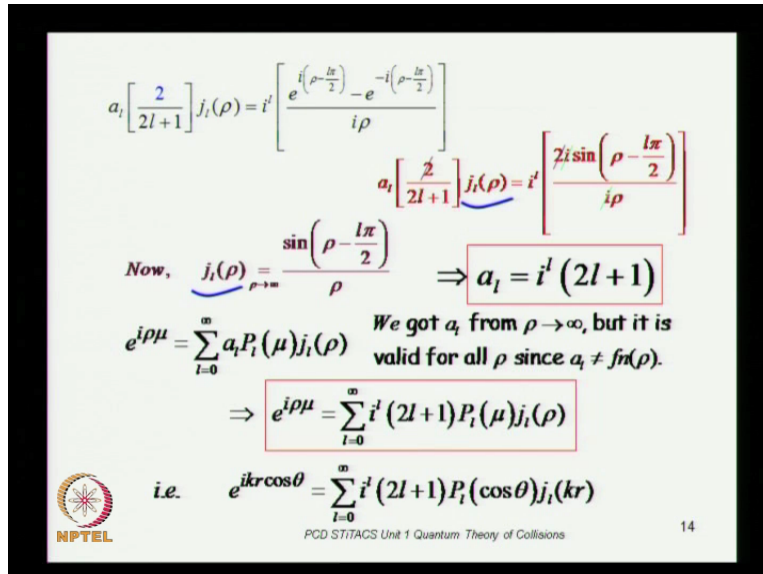 a_l [2/(2l+1)] j_l(ρ) = i^l [(e^{i(ρ-lπ/2)} - e^{-i(ρ-lπ/2)})/(iρ)]
a_l [2/(2l+1)] j_l(ρ) = i^l [2i sin(ρ - lπ/2)/(iρ)]
Now, j_l(ρ) =_{ρ→∞} sin(ρ - lπ/2)/ρ ⇒ a_l = i^l (2l+1)
e^{iρμ} = ∑_{l=0}^{∞} a_l P_l(μ) j_l(ρ)
We got a_l from ρ→∞, but it is
valid for all ρ since a_l ≠ fn(ρ).
⇒ e^{iρμ} = ∑_{l=0}^{∞} i^l (2l+1) P_l(μ) j_l(ρ)
i.e. e^{ikr cosθ} = ∑_{l=0}^{∞} i^l (2l+1) P_l(cosθ) j_l(kr)
NPTEL
PCD STiTACS Unit 1 Quantum Theory of Collisions
14